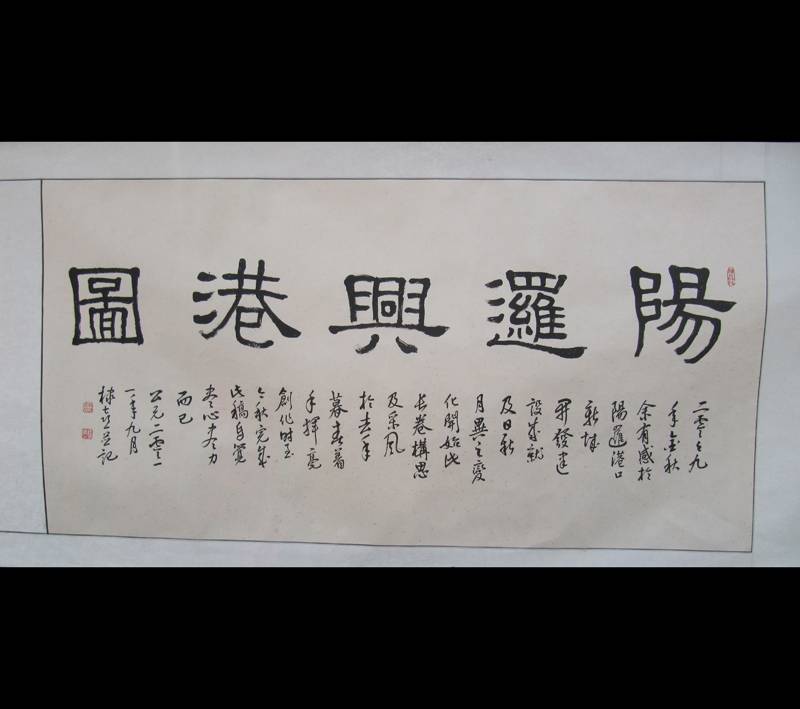 陽邏興港圖
二零零九
年金秋
余有感於
陽邏港口
新城
開發建
設成就
及日新
月異之變
化開始此
長卷構思
及采風
於去年
暮春著
手揮毫
創作時至
今秋完成
此稿自覺
盡心盡力
而已
公元二零一
一年九月
並記